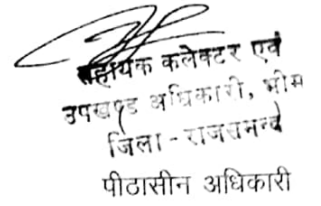 सहायक कलेक्टर एवं
उपखण्ड अधिकारी, भीम
जिला - राजसमन्द
पीठासीन अधिकारी